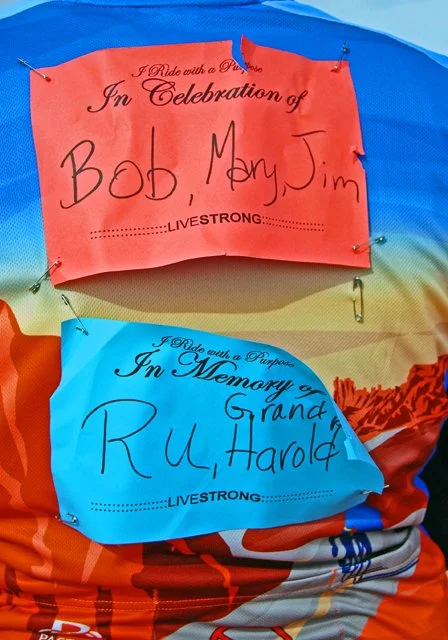 I Ride with a Purpose
In Celebration of
Bob, Mary, Jim
LIVESTRONG
I Ride with a Purpose
In Memory of
Grand
Ru, Harold
LIVESTRONG